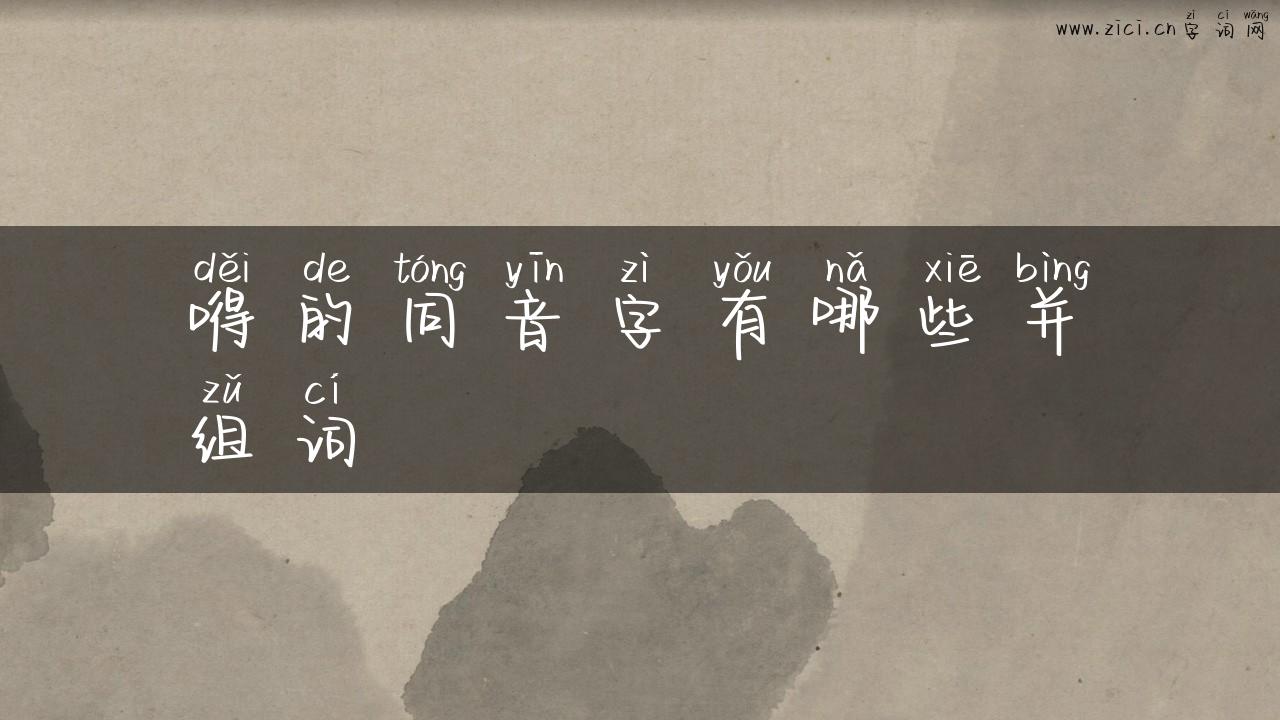 zì cí wǎng
www.zici.cn字词网
děi de tóng yīn zì yǒu nǎ xiē bìng
嘚的同音字有哪些并
zǔ cí
组词